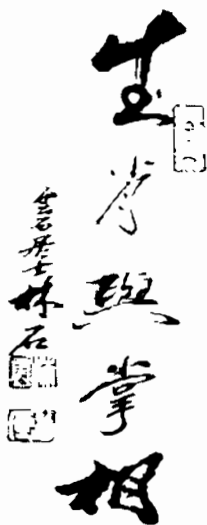 生肖與掌相
雲石居士林石